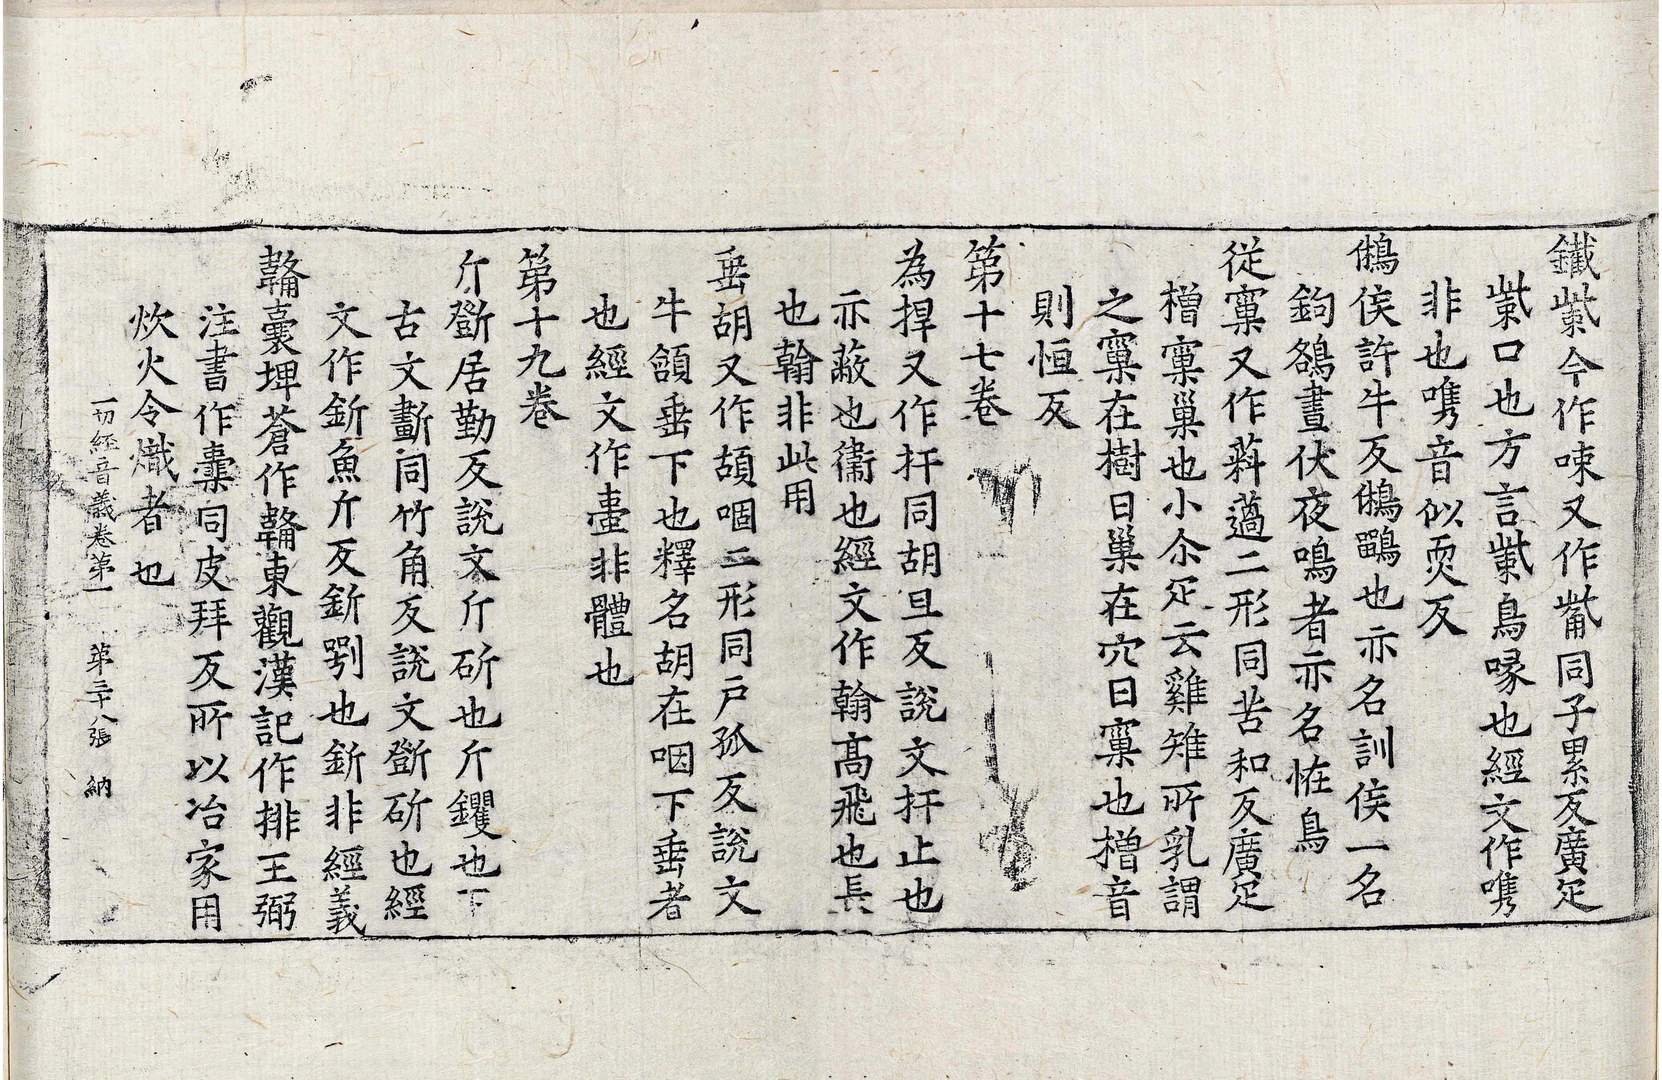 鐵㭰今作㖩又作觜同子累反廣疋
㭰口也方言㭰鳥喙也經文作嘴
非也嘴音似兖反
鵂侯許牛反鵂鶹也亦名訓侯一名
鉤鵅晝伏夜鳴者亦名恠鳥
從窠又作薖二形同苦和反廣疋
橧窠巢也小尒疋云雞雉所乳謂
之窠在樹曰巢在穴曰窠也橧音
則恒反
第十七卷
為捍又作扞同胡旦反說文扞止也
亦蔽也衞也經文作翰高飛也長
也翰非此用
垂胡又作頡咽二形同戶孤反說文
牛頷垂下也釋名胡在咽下垂者
也經文作壷非體也
第十九卷
斤斵居勤反說文斤斫也斤钁也下
古文斲同竹角反說文斵斫也經
文作釿魚斤反釿剟也釿非經義
韛囊埤蒼作韛東觀漢記作排王弼
注書作橐同皮拜反所以冶家用
炊火令熾者也
一切經音義卷第一 第二十八張 納